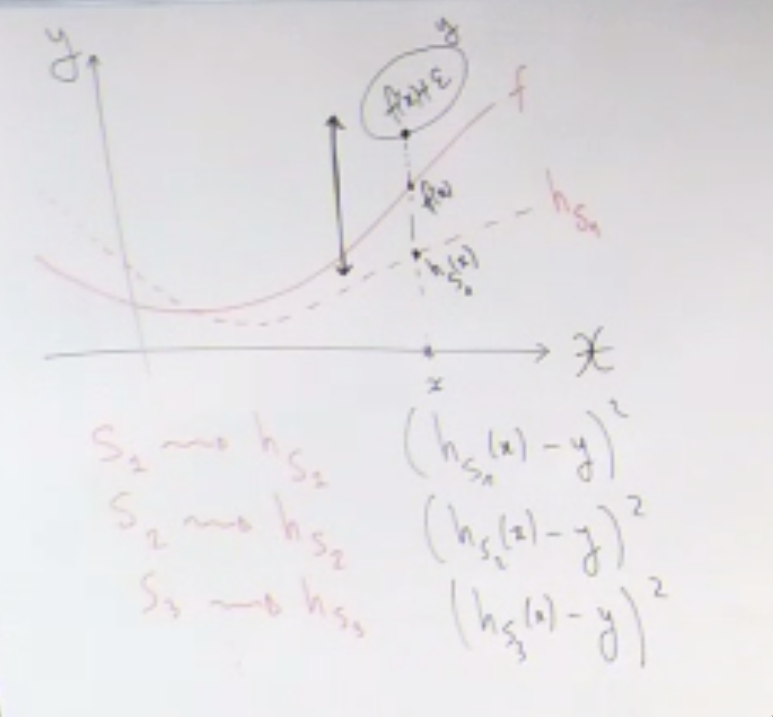 y
y
f(x)+ε
f
f(x)
h_{S_1}
h_{S_1}(x)
𝒳
x
S_1 ⟿ h_{S_1} (h_{S_1}(x) - y)^2
S_2 ⟿ h_{S_2} (h_{S_2}(x) - y)^2
S_3 ⟿ h_{S_3} (h_{S_3}(x) - y)^2